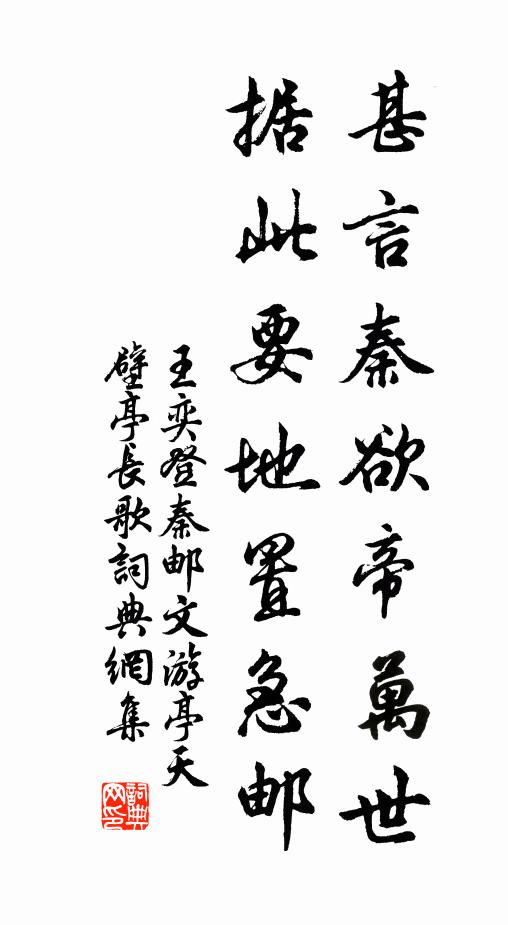 甚言秦欲帝萬世
据此要地置急邮
王奕登秦邮文游亭天
壁亭長歌詞典網集
詞典网印